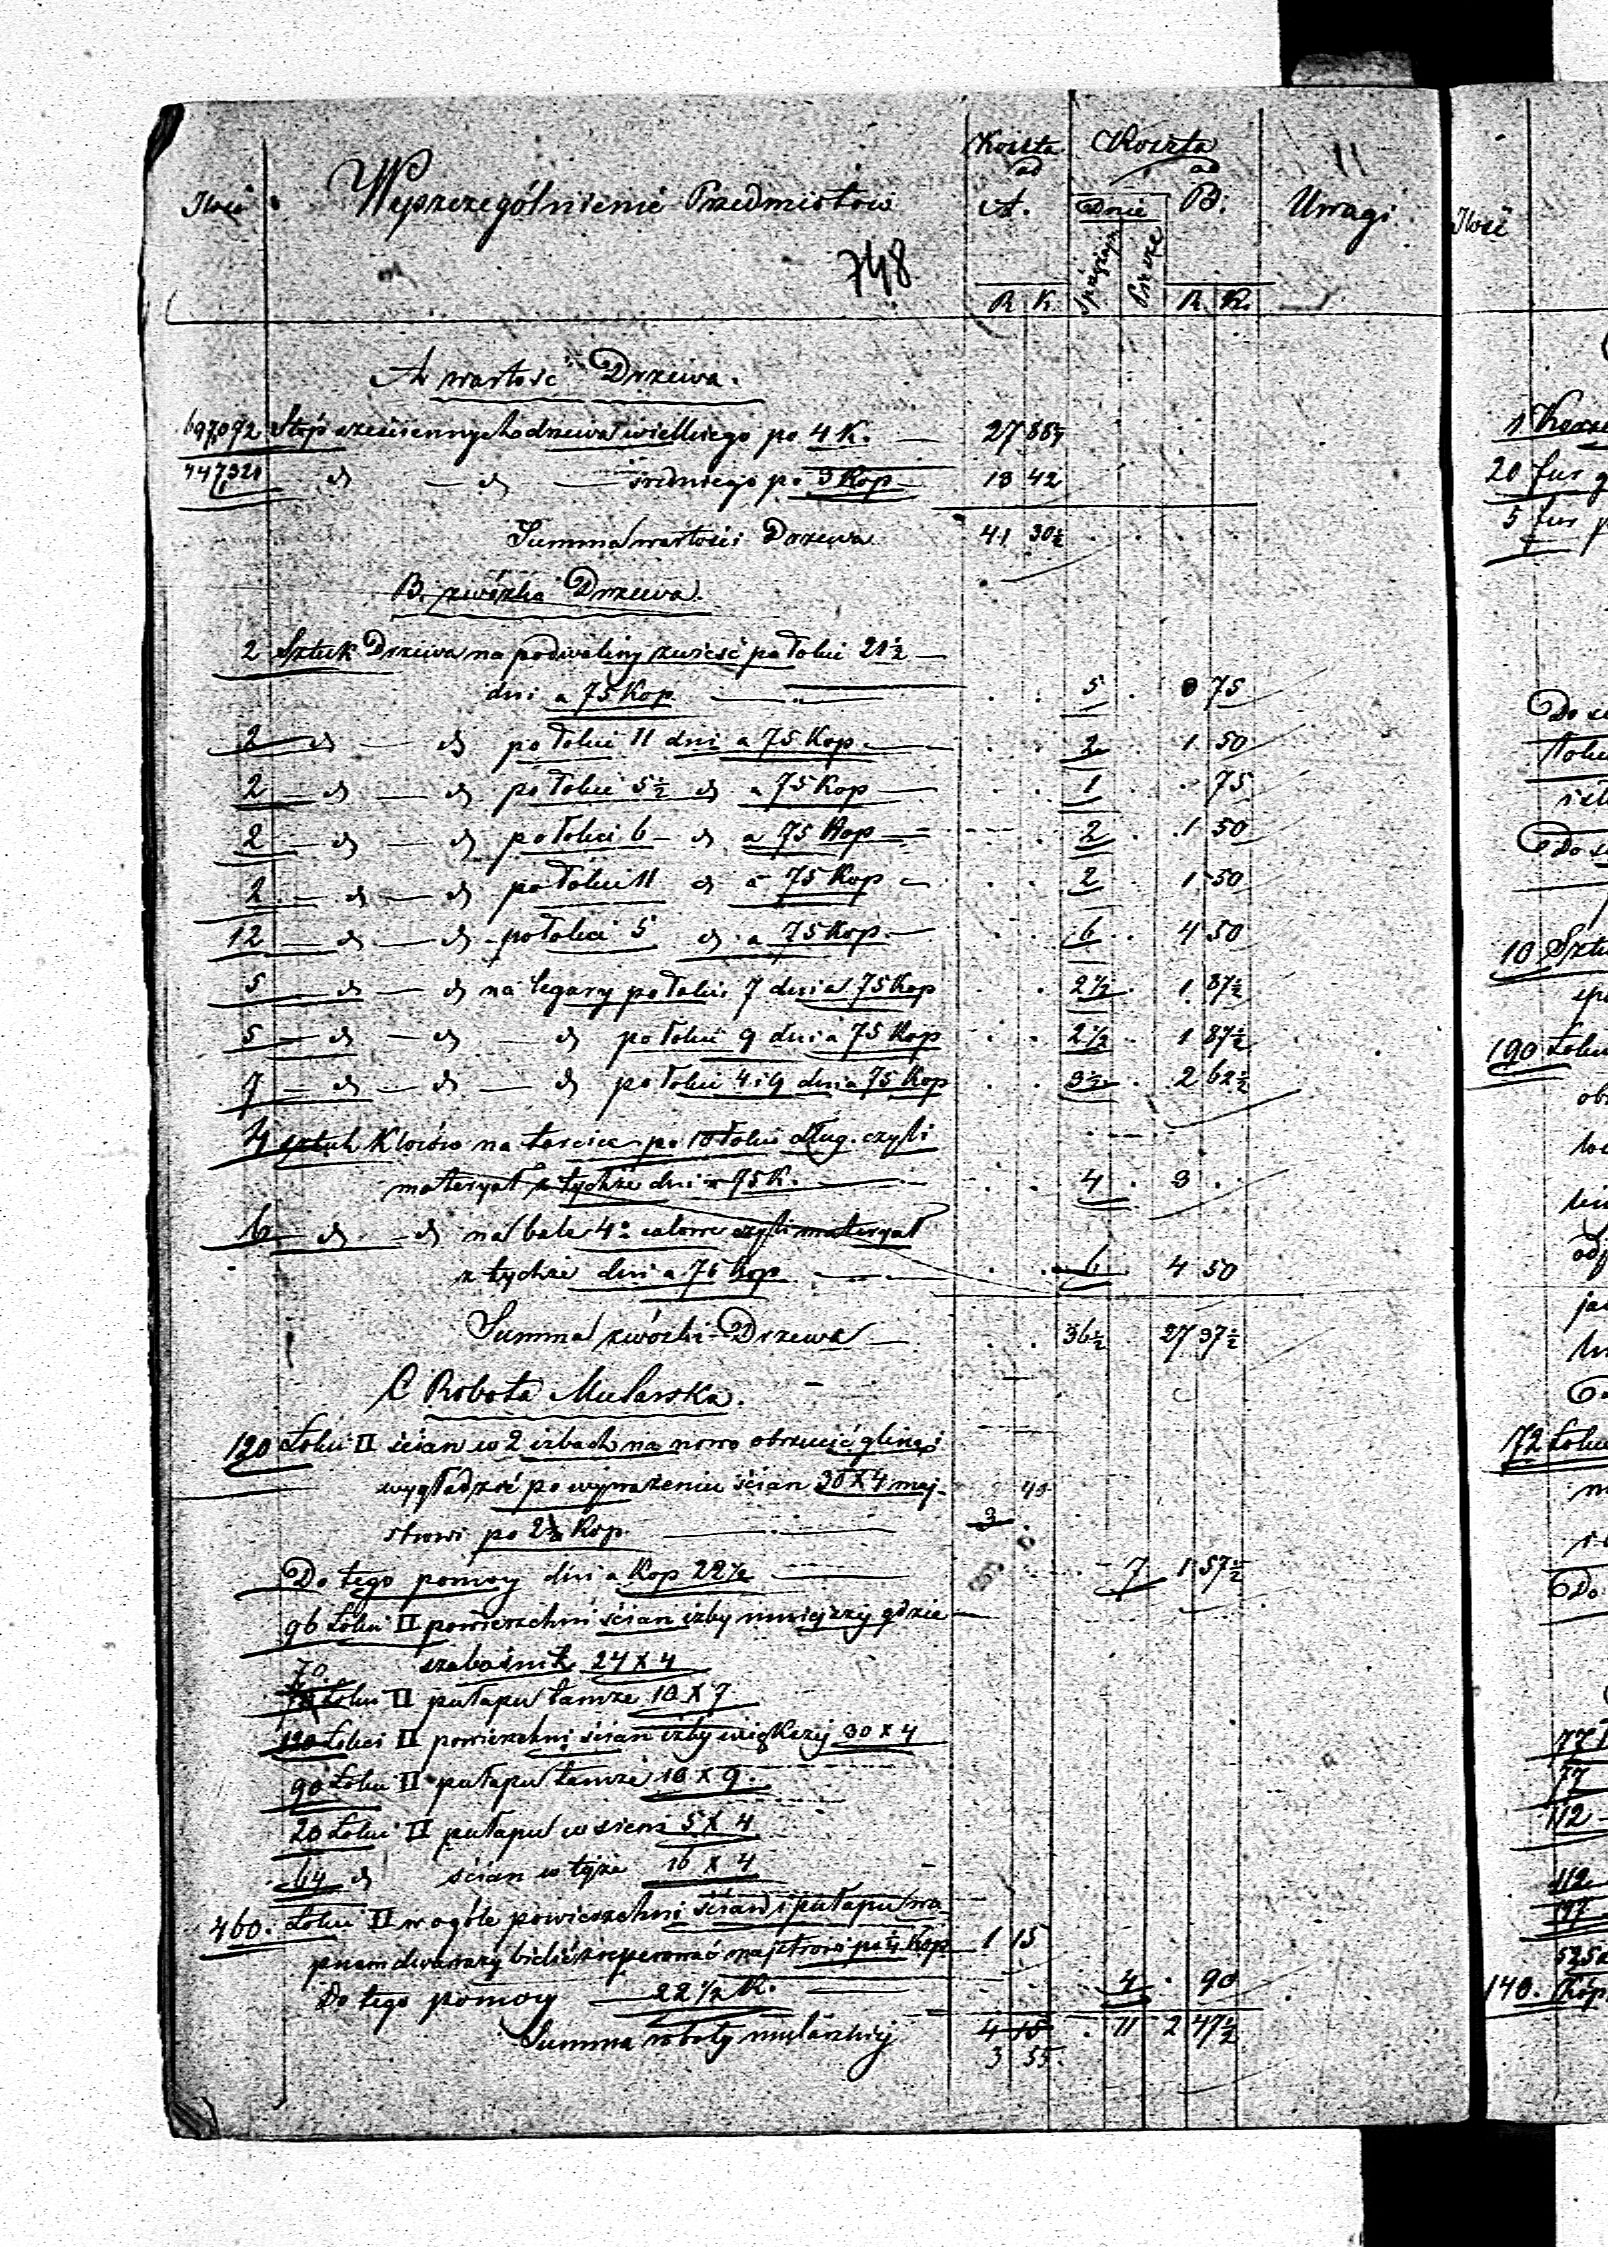 Ilość Wyszczególnienie Przedmiotów Koszta ad A. Koszta ad B. Uwagi
Dnie
748
sprzężaj. Piesze
R K R K.
A wartość Drzewa.
697,092 Stóp sześciennych drzewa wielkiego po 4 K. — 27 88½
447,321 d — d — średniego po 3 Kop — 13 42
Summa wartości Drzewa 41 30½
B. zwózka Drzewa.
2 Sztuk Drzewa na podwaliny zwieść po łokci 21½ —
dni a 75 Kop — 5 75
2 d — d po łokci 11 dni a 75 Kop — 2 1 50
2 — d — d po łokci 5½ d a 75 Kop — 1 75
2 — d — d po łokci 6 — d a 75 Kop — 2 1 50
2 — d — d po łokci 11 d a 75 Kop — 2 1 50
12 — d — d po łokci 5 d a 75 Kop. — 6 4 50
5 — d — d na legary po łokci 7 dni a 75 Kop 2½ 1 87½
5 — d — d — d po łokci 9 dni a 75 Kop 2½ 1 87½
7 — d — d — d po łokci 4 i 9 dni a 75 Kop 3½ 2 62½
4 sztuk Kloców na tarcice po 10 łokci dług. czyli
materyał z tychże dni a 75 K. — 4 3
6 d — d na bale 4o calowe czyli materyał
z tychże dni a 75 Kop — 6 4 50
Summa zwózki Drzewa — 36½ 27 37½
C Robota Mularska.
120 Łokci □ ścian w 2 izbach na nowo obrzucić gliną i
wygładzić po wymazeniu ścian 30 X 4 maj-
strowi po 2 Kop. — 3 40
Do tego pomocy dni a Kop 22½ — 7 1 57½
96 Łokci □ powierzchni ścian izby mniejszej gdzie
szabaśnik 24 X 4
70 Łokci □ pułapu tamże 10 X 7
120 Łokci □ powierzchni ścian izby większej 30 X 4
90 Łokci □ pułapu tamże 10 X 9.
20 Łokci □ pułapu w sieni 5 X 4
64 d ścian w tejże 16 X 4
460. Łokci □ w ogóle powierzchni ścian i pułapu
dwa razy bielić majstrowi po ¼ Kop 1 15
Do tego pomocy — 22½ K. — 4 90
Summa roboty mularskiej 4 15 11 2 47½
3 55.
Ilość
1
20 fur
5 fur
10
190 Łokci
72 Łokci
Do
77
77
112
112
140.